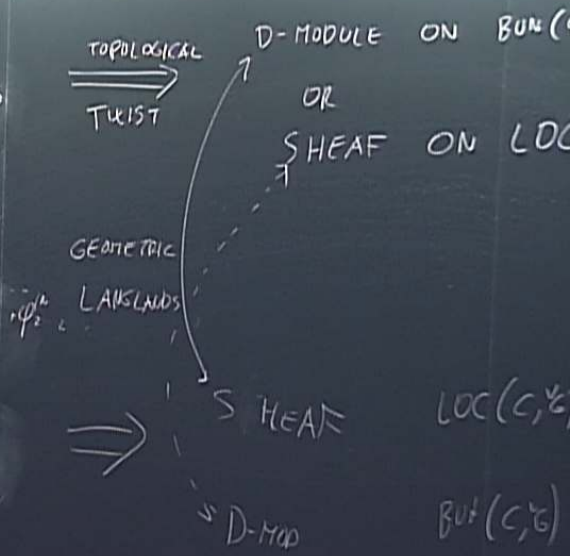 TOPOLOGICAL
TWIST
D-MODULE ON BUN(
OR
SHEAF ON LOC
GEOMETRIC
LANGLANDS
SHEAF LOC(C,
D-MOD BUN(C,